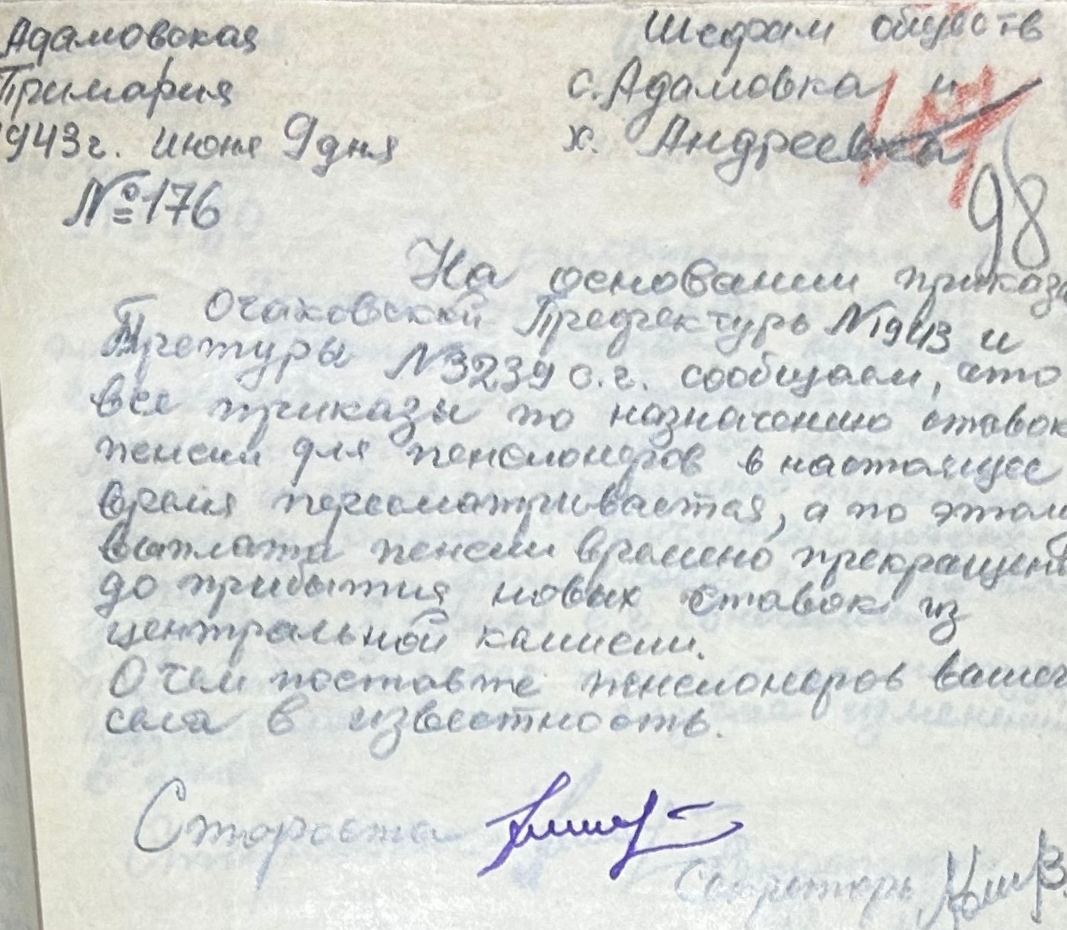 Адамовская
Примария
1943г. июня 9 дня
№176
Шефам обществ
с. Адамовка и
х. Андреевка
98
На основании приказа
Очаковской Префектуры N1943 и
Претуры N3239 с.г. сообщаем, что
все приказы по назначению ставок
пенсии для пенсионеров в настоящее
время пересматривается, а по этому
выплата пенсии времено прекращена
до прибытия новых ставок из
центральной камисии.
О чем поставте пенсионеров вашего
села в известность.
Староста
Секретарь